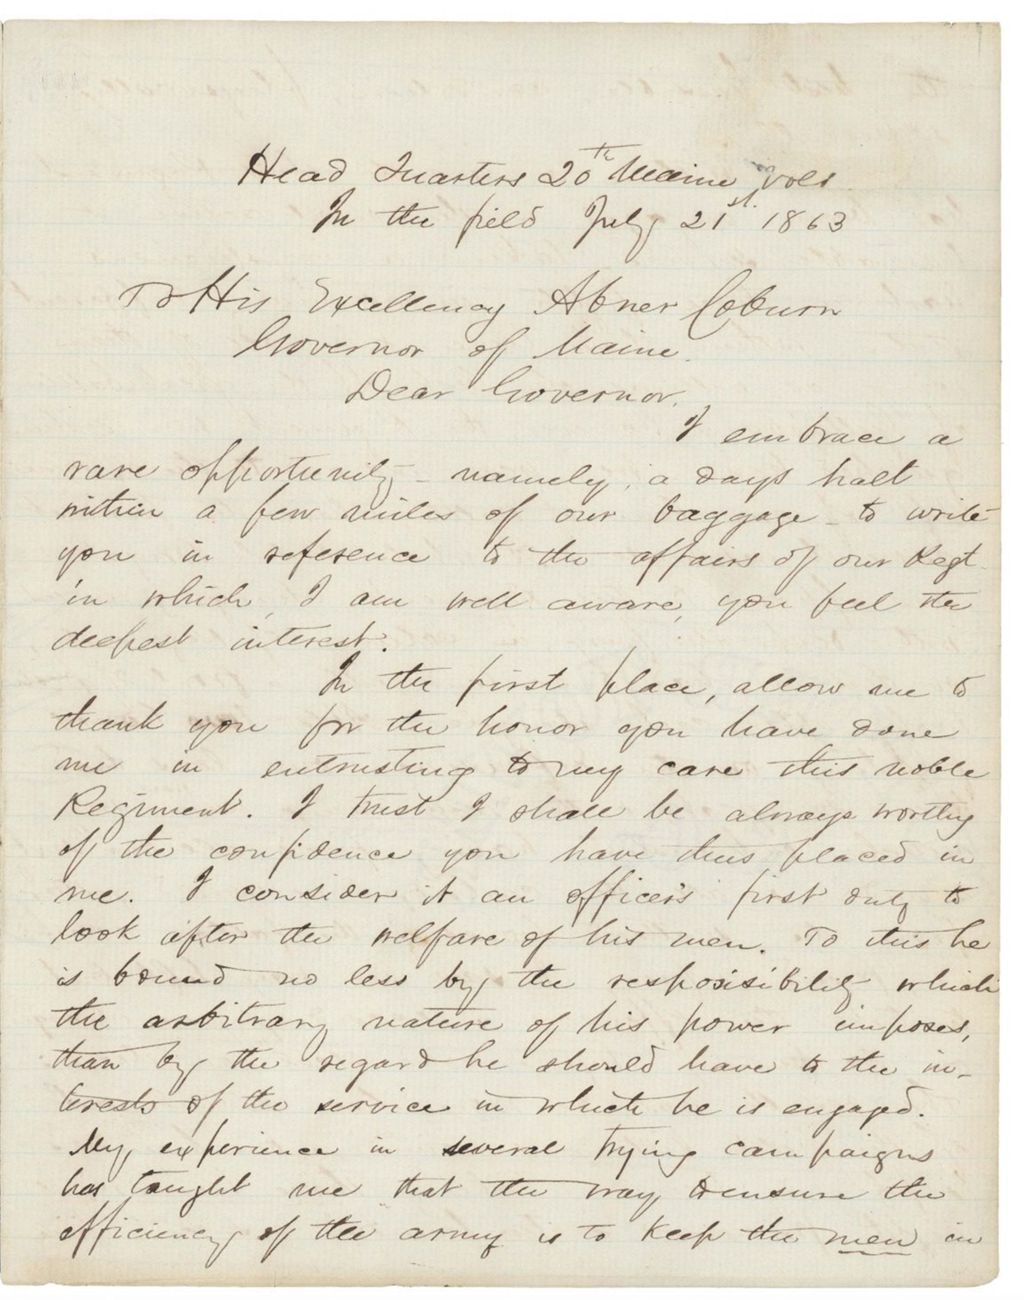 Head Quarters 20th Maine Vols
In the field July 21st. 1863
To His Excellency Abner Coburn
Governor of Maine.
Dear Governor.
I embrace a
rare opportunity - namely, a days halt
within a few miles of our baggage - to write
you in reference to the affairs of our Regt.
in which, I am well aware, you feel the
deepest interest.
In the first place, allow me to
thank you for the honor you have done
me in entrusting to my care this noble
Regiment. I trust I shall be always worthy
of the confidence you have thus placed in
me. I consider it an officer's first duty to
look after the welfare of his men. To this he
is bound no less by the resposisibility which
the arbitrary nature of his power imposes,
than by the regard he should have to the in-
terests of the service in which he is engaged.
My experience in several trying campaigns
has taught me that the way to ensure the
efficiency of the army is to keep the men in